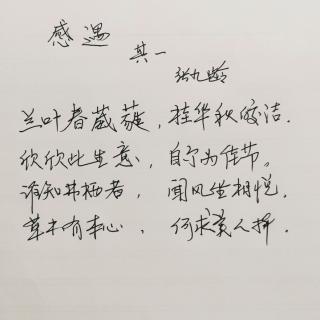 感遇
其一
张九龄
兰叶春葳蕤，桂华秋皎洁.
欣欣此生意，自尔为佳节。
谁知林栖者，闻风坐相悦.
草木有本心，何求美人折.